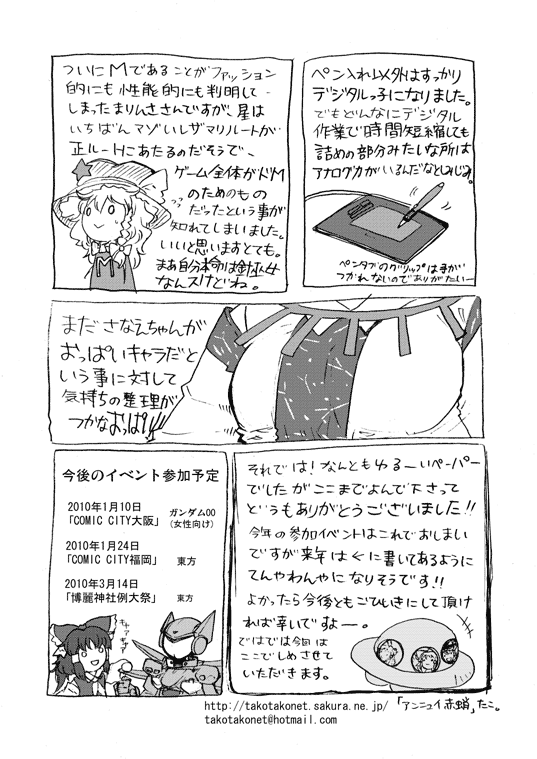 ついにMであることがファッション
的にも性能的にも判明して
しまったまりんささんですが、星は
いちばんマゾいしザマリルートが
正ルートにあたるのだそうで、
ゲーム全体がドM
のためのもの
だったという事が
知れてしまいました。
いいと思いますとても。
まあ自分本命は針巫女
なんスけどね。
ペン入れ以外はすっかり
デジタルっ子になりました。
でもどんなにデジタル
作業で時間短縮しても
詰めの部分みたいな所は
アナログ力がいるんだなとしみじみ。
ペンタブのグリップは手が
つかれないのでありがたいー
まださなえちゃんが
おっぱいキャラだと
いう事に対して
気持ちの整理が
つかなおっぱい!!
今後のイベント参加予定
2010年1月10日
「COMIC CITY大阪」 ガンダム00
(女性向け)
2010年1月24日
「COMIC CITY福岡」 東方
2010年3月14日
「博麗神社例大祭」 東方
それでは!なんともゆるーいペーパー
でしたがここまでよんで下さって
どうもありがとうございました!!
今年の参加イベントはこれでおしまい
ですが来年は←に書いてあるように
てんやわんやになりそうです!!
よかったら今後ともごひいきにして頂け
れば幸いですよー。
ではでは今回は
ここでしめさせて
いただきます。
http://takotakonet.sakura.ne.jp/ 「アンニュイ赤蛸」たこ。
takotakonet@hotmail.com